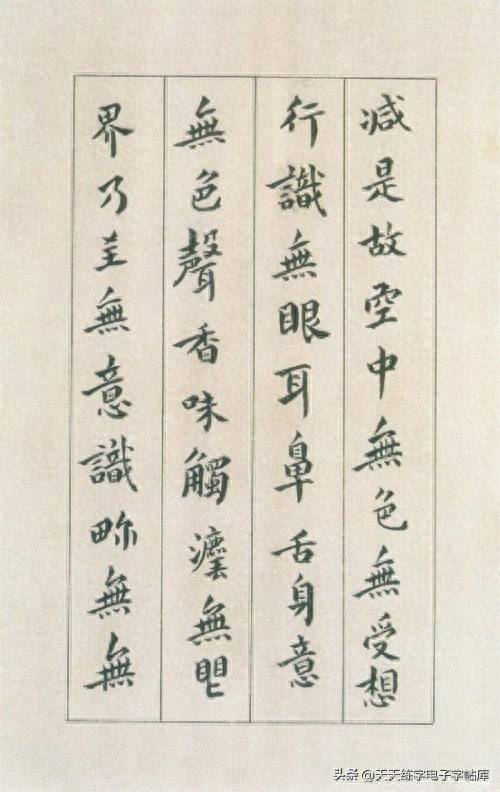 減是故空中無色無受想
行識無眼耳鼻舌身意
無色聲香味觸灋無眼
界乃至無意識畍無無
头条 @天天练字电子字帖库